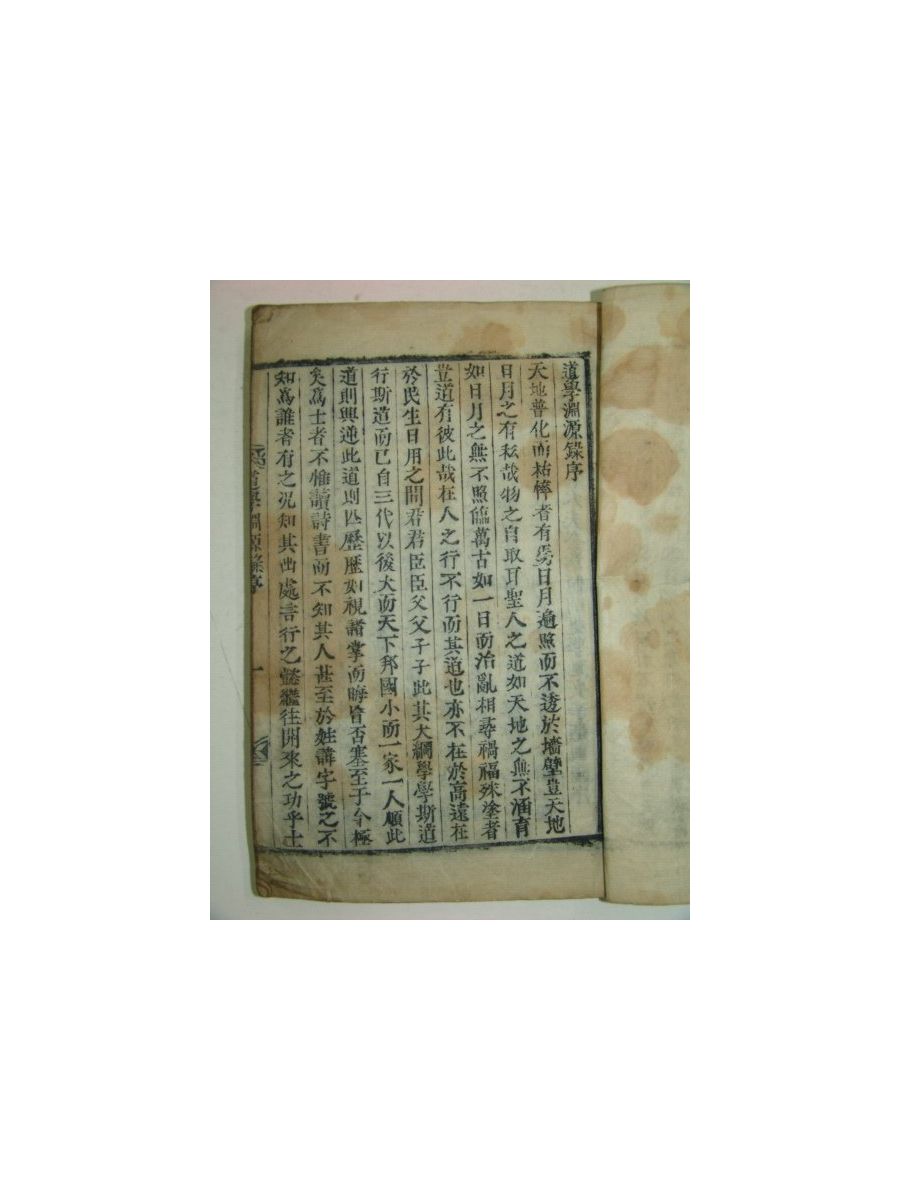 道學淵源錄序
天地普化而枯悴者有焉日月遍照而不透於墻壁豈天地
日月之有私哉物之自取耳聖人之道如天地之無不涵育
如日月之無不照臨萬古如一日而治亂相尋禍福殊塗者
豈道有彼此哉在人之行不行而其道也亦不在於高遠在
於民生日用之間君君臣臣父父子子此其大綱學學斯道
行斯道而已自三代以後大而天下邦國小而一家一人順此
道則興逆此道則亡歷歷如視諸掌而晦盲否塞至于今極
矣爲士者不惟讀詩書而不知其人甚至於姓諱字號之不
知爲誰者有之況知其出處言行之懿繼往開來之功乎士
道學淵源錄序 一